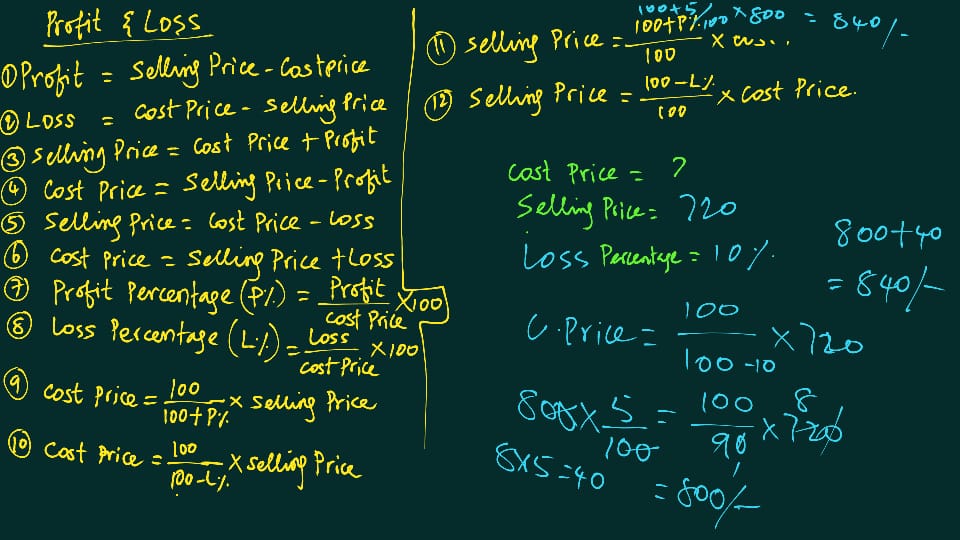 Profit & Loss
① Profit = Selling Price - Costprice
② Loss = Cost Price - Selling Price
③ Selling Price = Cost Price + Profit
④ Cost Price = Selling Price - Profit
⑤ Selling Price = Cost Price - Loss
⑥ Cost Price = Selling Price + Loss
⑦ Profit Percentage (P%) = Profit / Cost Price × 100
⑧ Loss Percentage (L%) = Loss / Cost Price × 100
⑨ Cost Price = 100 / 100+P% × Selling Price
⑩ Cost Price = 100 / 100-L% × Selling Price
100+5 / 100 × 800 = 840/-
⑪ Selling Price = 100+P% / 100 ×
⑫ Selling Price = 100-L% / 100 × Cost Price.
Cost Price = ?
Selling Price = 720
Loss Percentage = 10%.
C.Price = 100 / 100-10 × 720
= 100 / 90 × 720 8
= 800/-
800 × 5 / 100
8×5=40
800+40
= 840/-